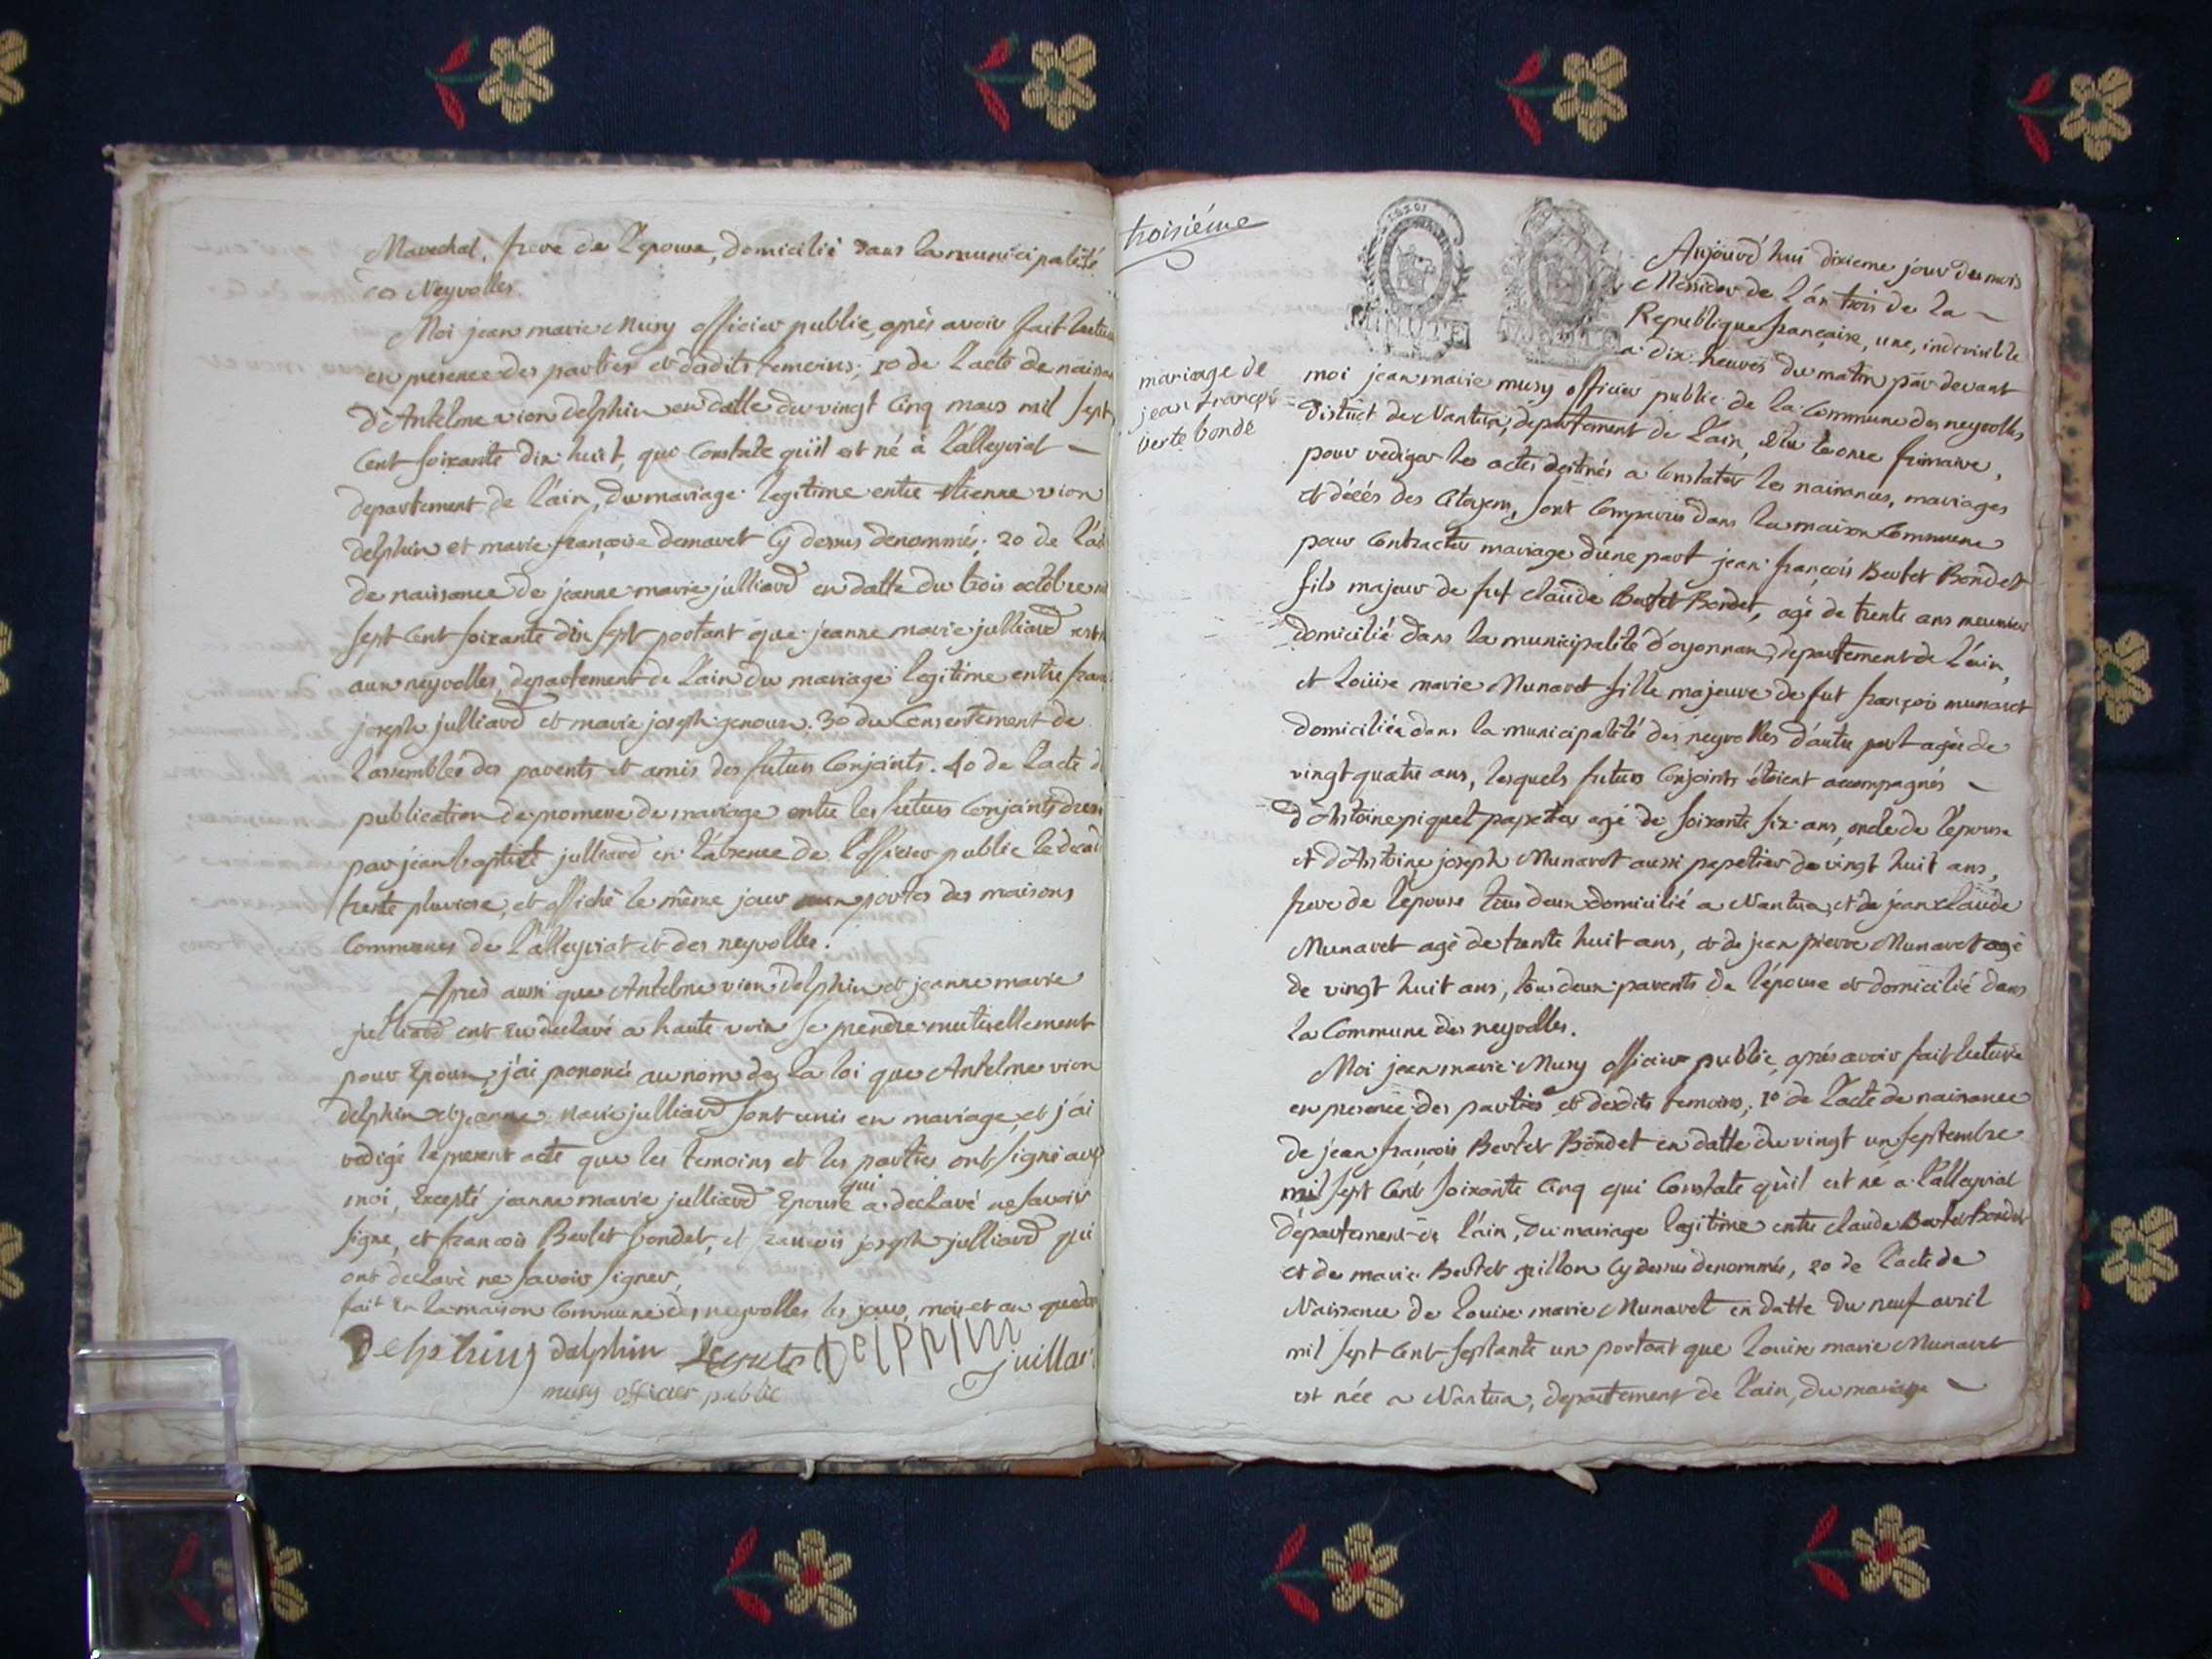 Marechal, frere de l'epouse, domicilié dans la municipalité
des Neyrolles.
Moi jean marie Musy officier public, après avoir fait lecture
en presence des parties et desdits temoins; 1o de l'acte de naissan
d'Antelme vion delphin en datte du vingt Cinq mars mil sept
Cent soixante dix huit, qui Constate qu'il est né à Lalleyriat
departement de l'ain, du mariage legitime entre etienne vion
delphin et marie françoise demaret Cy dessus denommés; 2o de l'ac
de naissance de jeanne marie julliard en datte du trois octobre m
sept Cent soixante dix sept portant que jeanne marie julliard est n
aux neyrolles, departement de l'ain du mariage legitime entre fran
joseph julliard et marie joseph genoux. 3o du Consentement de
l'assemblée des parents et amis des futurs Conjoints. 4o de l'acte d
publication de promesse de mariage entre les futurs Conjoints
par jean baptiste julliard en l'absence de l'officier public le
trente pluviose, et affiché le même jour aux portes des maisons
Communes de Lalleyriat et des neyrolles.
Après aussi que Antelme vion delphin et jeanne marie
julliard ont eu declaré a haute voix se prendre mutuellement
pour Epoux, j'ai prononcé au nom de la loi que Antelme vion
delphin et jeanne Marie julliard sont unis en mariage, et j'ai
redigé le present acte que les temoins et les parties ont signé avec
moi, Excepté jeanne marie julliard Epouse qui a declaré ne savoir
signe, et francois Bertet bondet, et francois joseph julliard qui
ont declaré ne savoir signer,
fait en la maison Commune des neyrolles les jour, mois et an que
delphin delphin DelPhin juillar
musy officier public
troisiéme
mariage de
jean françoi
berte bonde
Aujourd'hui dixieme jour du mois
Messidor de l'an trois de la
Republique française, une, indivisible
a dix heures du matin par devant
moi jean marie musy officier public de la Commune des neyrolles
District de Nantua, departement de l'ain, Elu le onze frimaire,
pour rediger les actes destinés a Constater les naissances, mariages
et décés des Citoyens, sont Comparus dans la maison Commune
pour Contracter mariage d'une part jean françois Bertet Bondet
fils majeur de fut claude Bertet Bondet, agé de trente ans meunier
domicilié dans la municipalité d'oyonnax, departement de l'ain,
et Louise marie Munaret fille majeure de fut françois munaret
domiciliée dans la municipalité des neyrolles d'autre part agée de
vingt quatre ans, lesquels futurs Conjoints étoient accompagnés
d'Antoine piquet papetier agé de soixante six ans, oncle de l'epouse
et d'Antoine joseph Munaret aussi papetier de vingt huit ans,
frere de l'epouse tous deux domicilié a Nantua, et de jean claude
Munaret agé de trente huit ans, et de jean pierre Munaret agé
de vingt huit ans, tous deux parents de l'épouse et domicilié dans
la Commune des neyrolles.
Moi jean marie Musy officier public, aprés avoir fait lecture
en presence des parties et desdits temoins; 1o de l'acte de naissance
de jean françois Bertet Bondet en datte du vingt un septembre
mil sept Cent soixante Cinq qui Constate qu'il est né a Lalleyriat
département de l'ain, du mariage legitime entre claude Bertet Bondet
et de marie Bertet guillon Cy dessus denommés, 2o de l'acte de
Naissance de Louise marie Munaret en datte du neuf avril
mil sept Cent septante un portant que Louise marie Munaret
est née a Nantua, departement de l'ain, du mariage